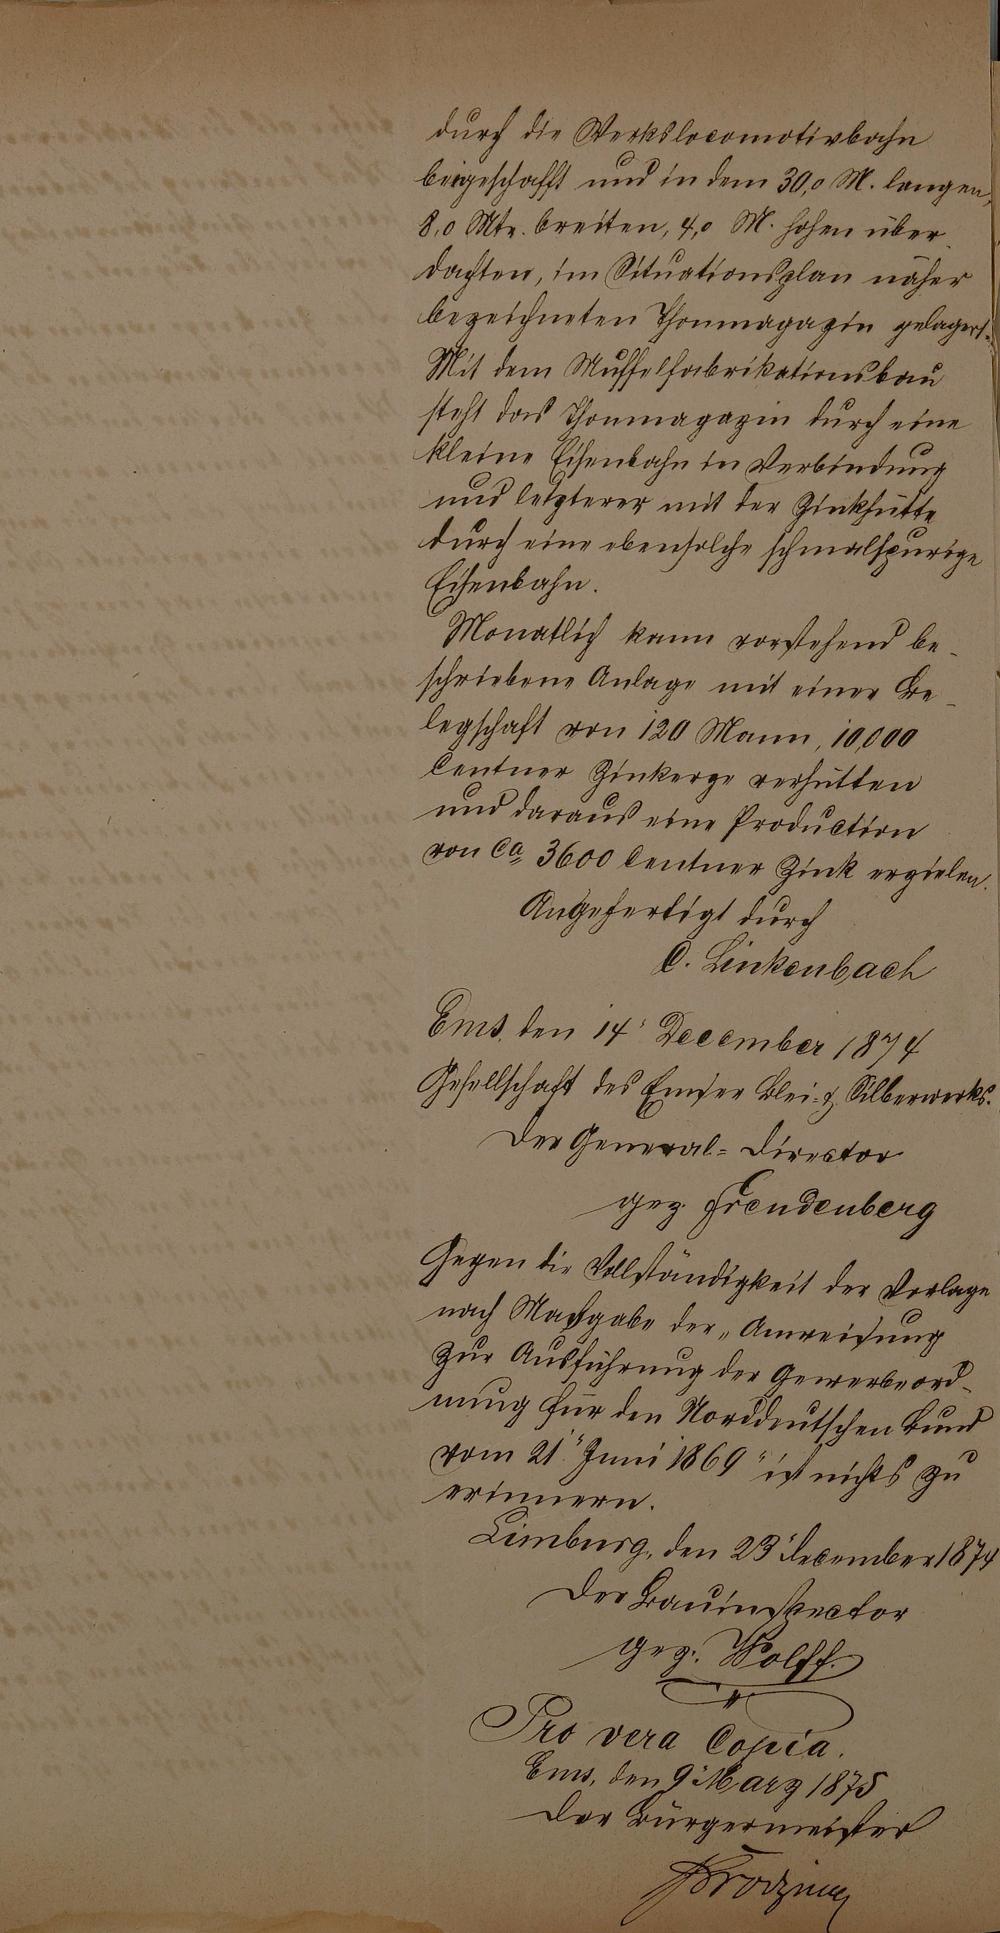 durch die Werkslocomotivbahn
beigeschafft und in dem 30,0 M. langen,
8,0 Mtr. breiten, 4,0 M. hohen über
dachten, im Situationsplan näher
bezeichneten Thonmagazin gelagert.
Mit dem Muffelfabrikationsbau
steht das Thonmagazin durch eine
kleine Eisenbahn in Verbindung
und letzterer mit der Zinkhütte
durch eine ebensolche schmalspurige
Eisenbahn.
Monatlich kann vorstehend be-
schriebene Anlage mit einer Be-
legschaft von 120 Mann, 10,000
Centner Zinkerze verhütten
und daraus eine Production
von ca 3600 Centner Zink erzielen.
Angefertigt durch
C. Linkenbach
Ems, den 14' December 1874
Gesellschaft des Emser Blei- & Silberwerks.
Der General-Director
gez. Freudenberg
Gegen die Vollständigkeit der Vorlage
nach Maßgabe der „Anweisung
zur Ausführung der Gewerbeord-
nung für den Norddeutschen Bund
vom 21" Juni 1869" ist nichts zu
erinnern.
Limburg, den 23' December 1874
Der Bauinspector
gez. Wolff.
Pro vera Copia.
Ems, den 9' März 1875
Der Bürgermeister